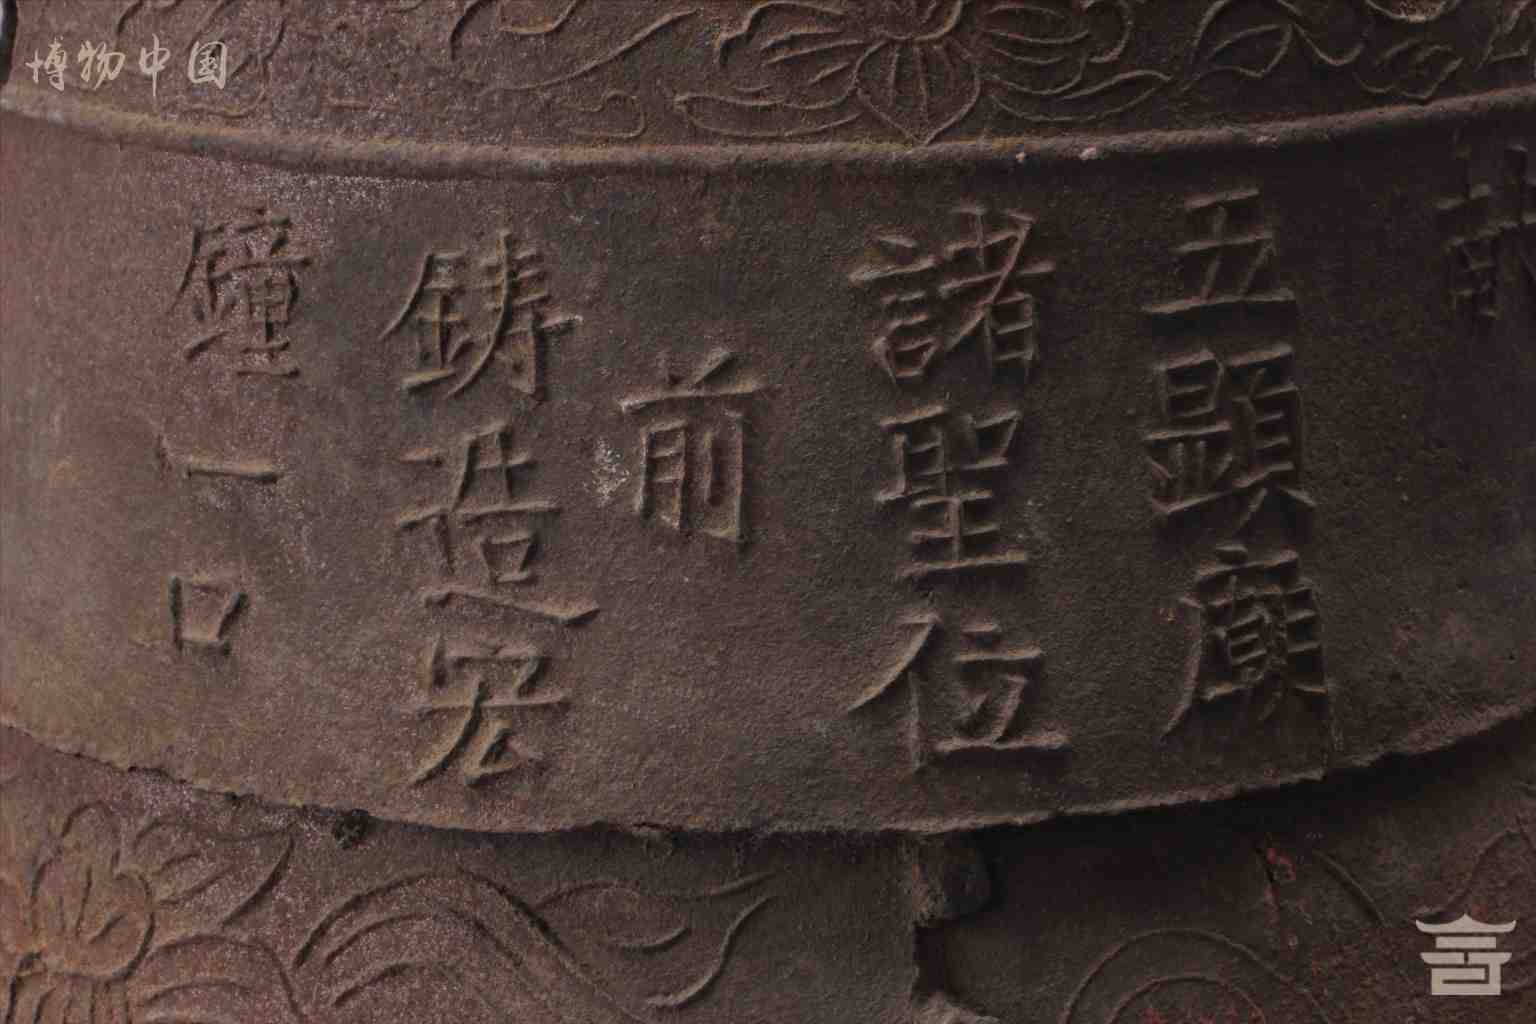 博物中国
五顯廟
諸聖位
前
鑄造宏
鐘一口